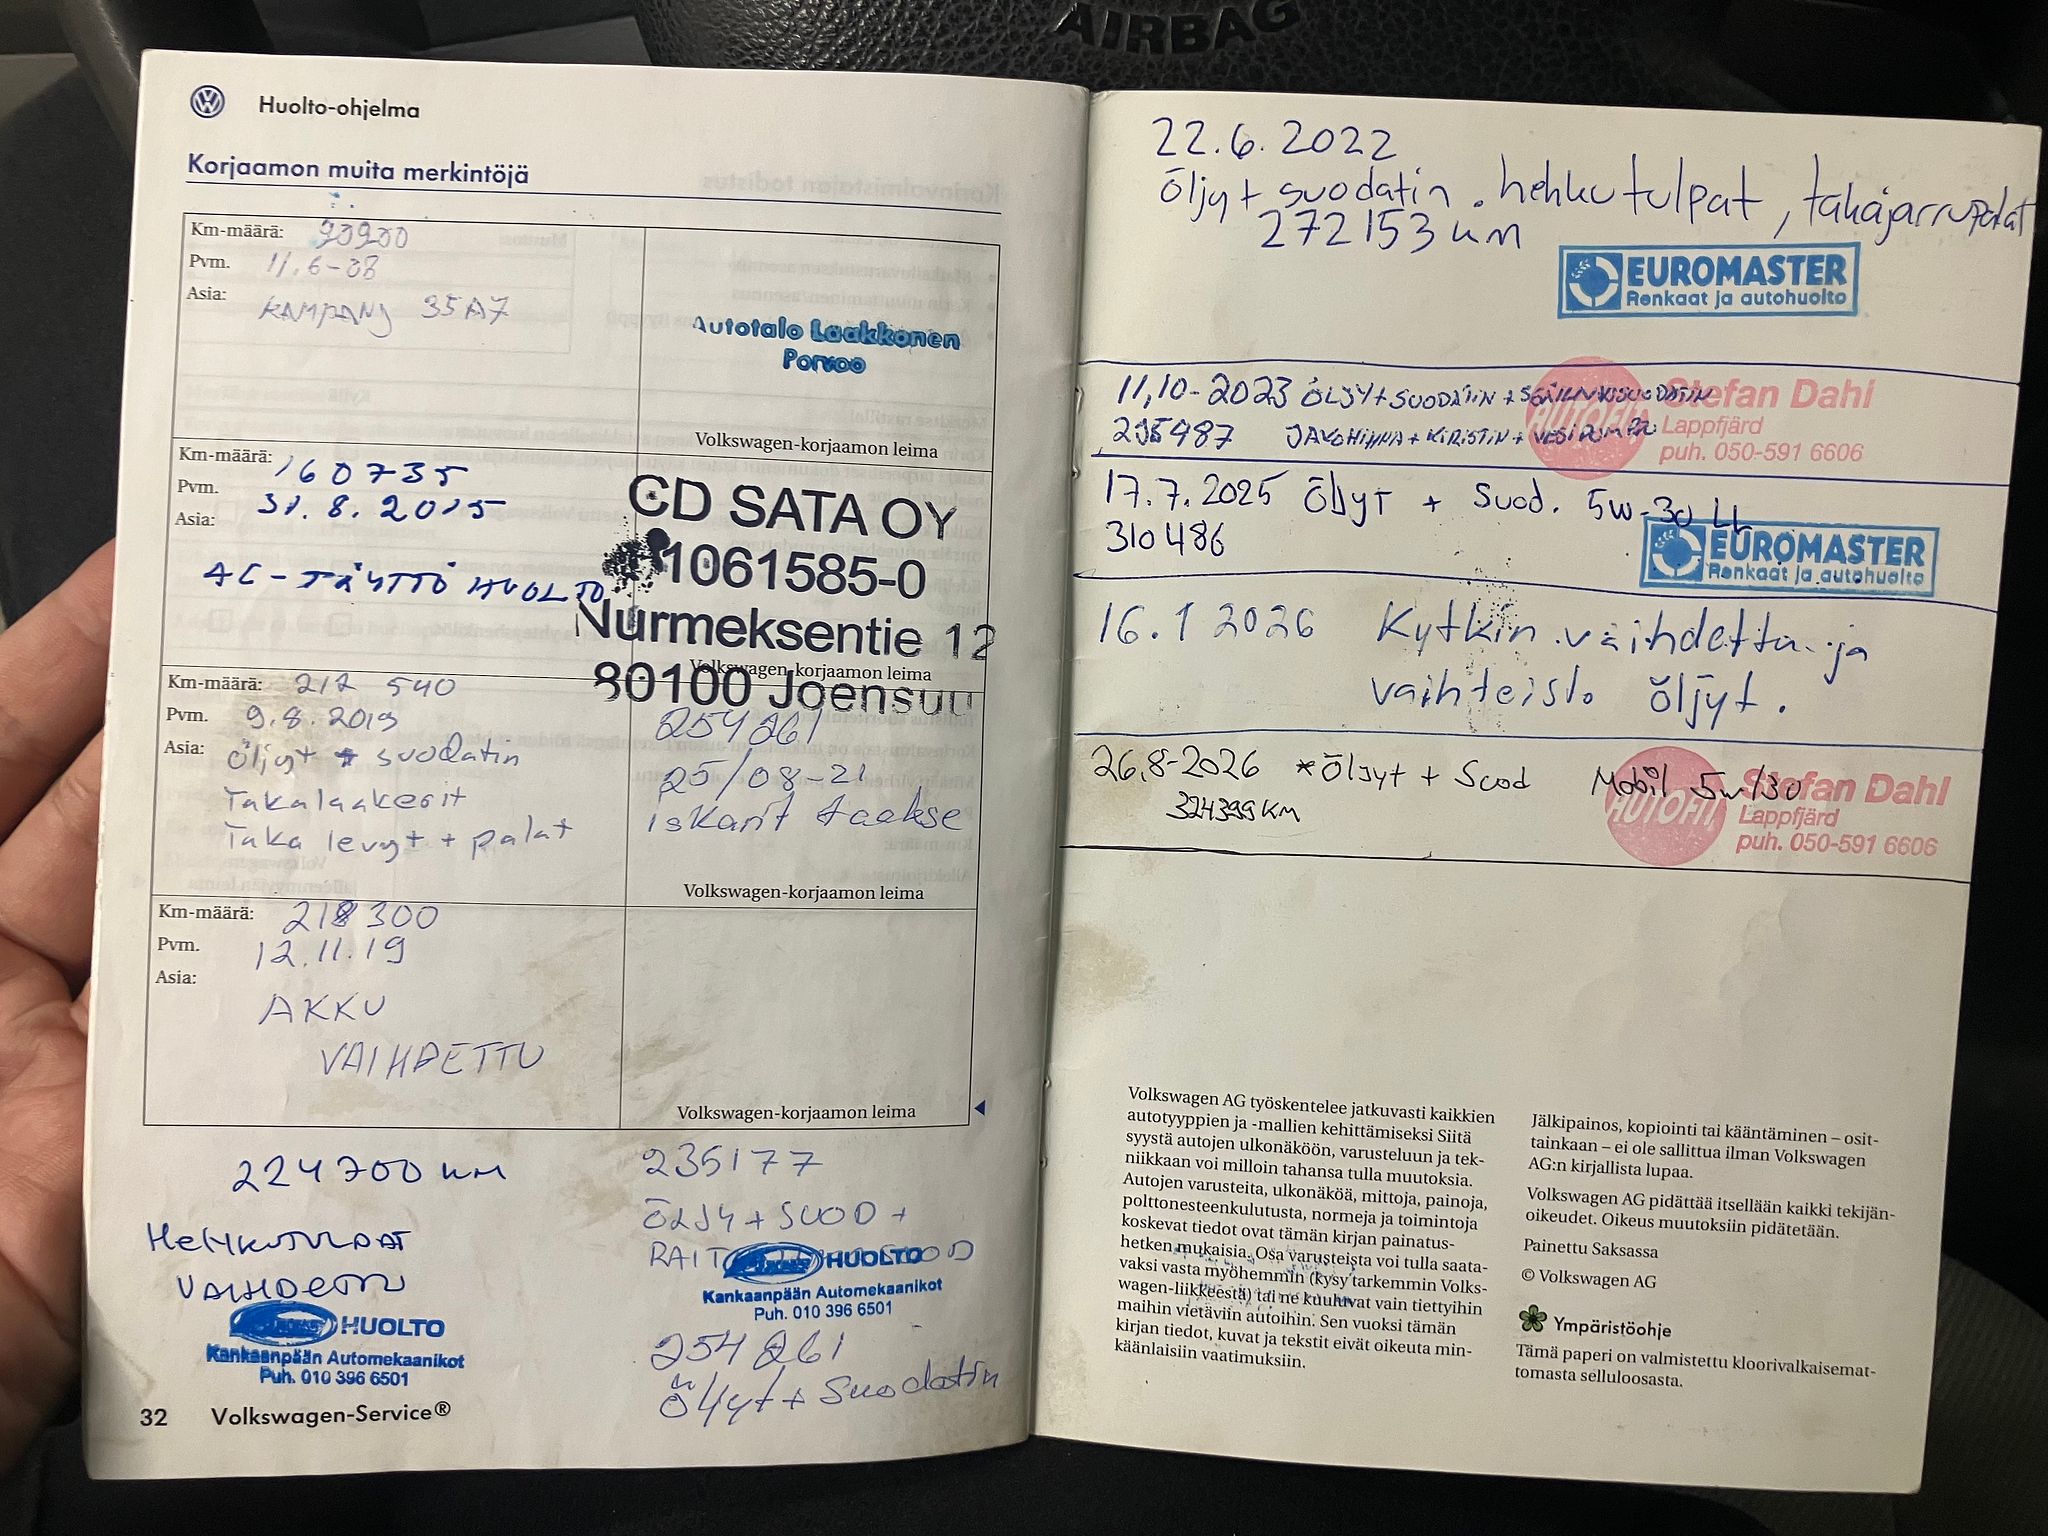 AIRBAG
Huolto-ohjelma
Korjaamon muita merkintöjä
Km-määrä: 90900
Pvm. 11.6-08
Asia: KAMPANJ 35A7
Autotalo Laakkonen
Porvoo
Volkswagen-korjaamon leima
Km-määrä: 160735
Pvm. 31.8.2015
Asia:
AC-TÄYTTÖ HUOLTO
CD SATA OY
1061585-0
Nurmeksentie 12
Volkswagen-korjaamon leima
80100 Joensuu
Km-määrä: 212 540
Pvm. 9.8.2019
Asia: öljyt + suodatin
Takalaakerit
Taka levyt + palat
254261
25/08-21
iskarit taakse
Volkswagen-korjaamon leima
Km-määrä: 218 300
Pvm. 12.11.19
Asia:
AKKU
VAIHDETTU
Volkswagen-korjaamon leima
224700 KM
HEHKUTULPAT
VAIHDETTU
HUOLTO
Kankaanpään Automekaanikot
Puh. 010 396 6501
235177
ÖLJY + SUOD +
HUOLTO
Kankaanpään Automekaanikot
Puh. 010 396 6501
254261
öljyt + suodatin
32 Volkswagen-Service®
22.6.2022
Öljyt suodatin. hehkutulpat, takajarrupalat
272153 km
EUROMASTER
Renkaat ja autohuolto
11,10-2023 ÖLJY + SUODATIN + SISÄILMASUODATIN
295487 JAKOHIHNA + KIRISTIN + VESIPUMPPU
AUTOFIT
Stefan Dahl
Lappfjärd
puh. 050-591 6606
17.7.2025 Öljyt + Suod. 5W-30 LL
310486
EUROMASTER
Renkaat ja autohuolto
16.1 2026 Kytkin vaihdettu ja
vaihteisto öljyt.
26,8-2026 *Öljyt + Suod Mobil 5w/30
324399 KM
AUTOFIT
Stefan Dahl
Lappfjärd
puh. 050-591 6606
Volkswagen AG työskentelee jatkuvasti kaikkien
autotyyppien ja -mallien kehittämiseksi Siitä
syystä autojen ulkonäköön, varusteluun ja tek-
niikkaan voi milloin tahansa tulla muutoksia.
Autojen varusteita, ulkonäköä, mittoja, painoja,
polttonesteenkulutusta, normeja ja toimintoja
koskevat tiedot ovat tämän kirjan painatus-
hetken mukaisia. Osa varusteista voi tulla saata-
vaksi vasta myöhemmin (kysy tarkemmin Volks-
wagen-liikkeestä) tai ne kuuluvat vain tiettyihin
maihin vietäviin autoihin. Sen vuoksi tämän
kirjan tiedot, kuvat ja tekstit eivät oikeuta min-
käänlaisiin vaatimuksiin.
Jälkipainos, kopiointi tai kääntäminen – osit-
tainkaan – ei ole sallittua ilman Volkswagen
AG:n kirjallista lupaa.
Volkswagen AG pidättää itsellään kaikki tekijän-
oikeudet. Oikeus muutoksiin pidätetään.
Painettu Saksassa
© Volkswagen AG
Ympäristöohje
Tämä paperi on valmistettu kloorivalkaisemat-
tomasta selluloosasta.